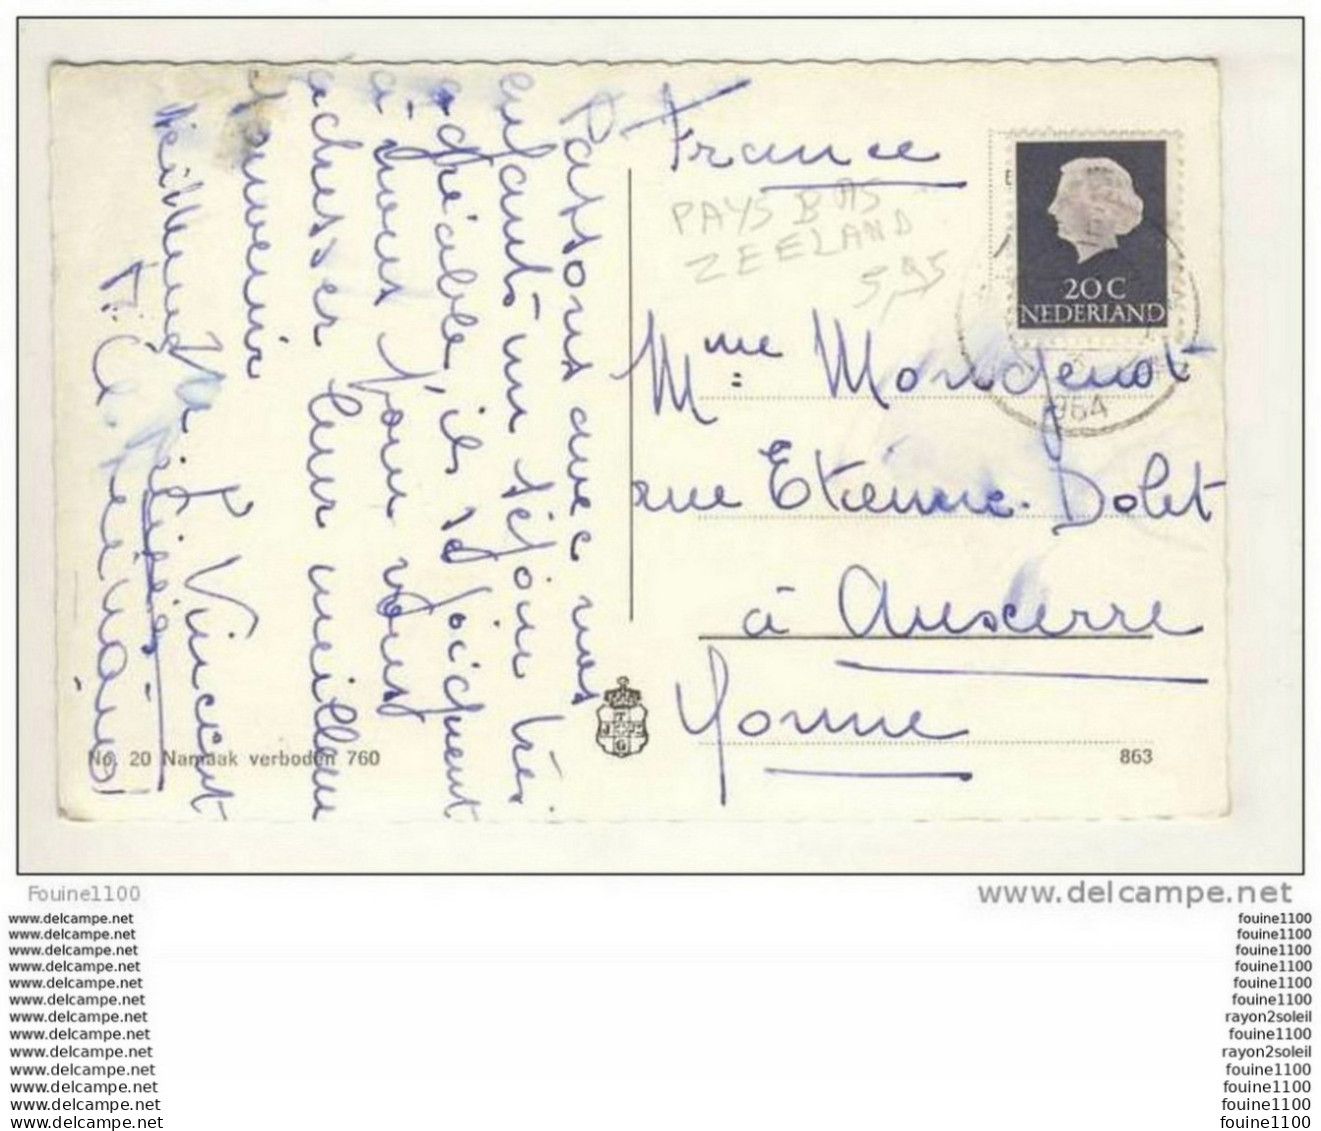 Passons avec nos
enfants un séjour très
agréable, ils se joignent
à nous pour vous
adresser leur meilleur
souvenir
Vincent
France
PAYS BAS
ZEELAND
5,95
20 C
NEDERLAND
1964
Mme Mongenot
rue Etienne-Dolet
à Auxerre
Yonne
No. 20 Namaak verboden 760
863
Fouine1100
www.delcampe.net
www.delcampe.net
www.delcampe.net
www.delcampe.net
www.delcampe.net
www.delcampe.net
www.delcampe.net
www.delcampe.net
www.delcampe.net
www.delcampe.net
www.delcampe.net
www.delcampe.net
www.delcampe.net
www.delcampe.net
fouine1100
fouine1100
fouine1100
fouine1100
fouine1100
fouine1100
rayon2soleil
fouine1100
rayon2soleil
fouine1100
fouine1100
fouine1100
fouine1100